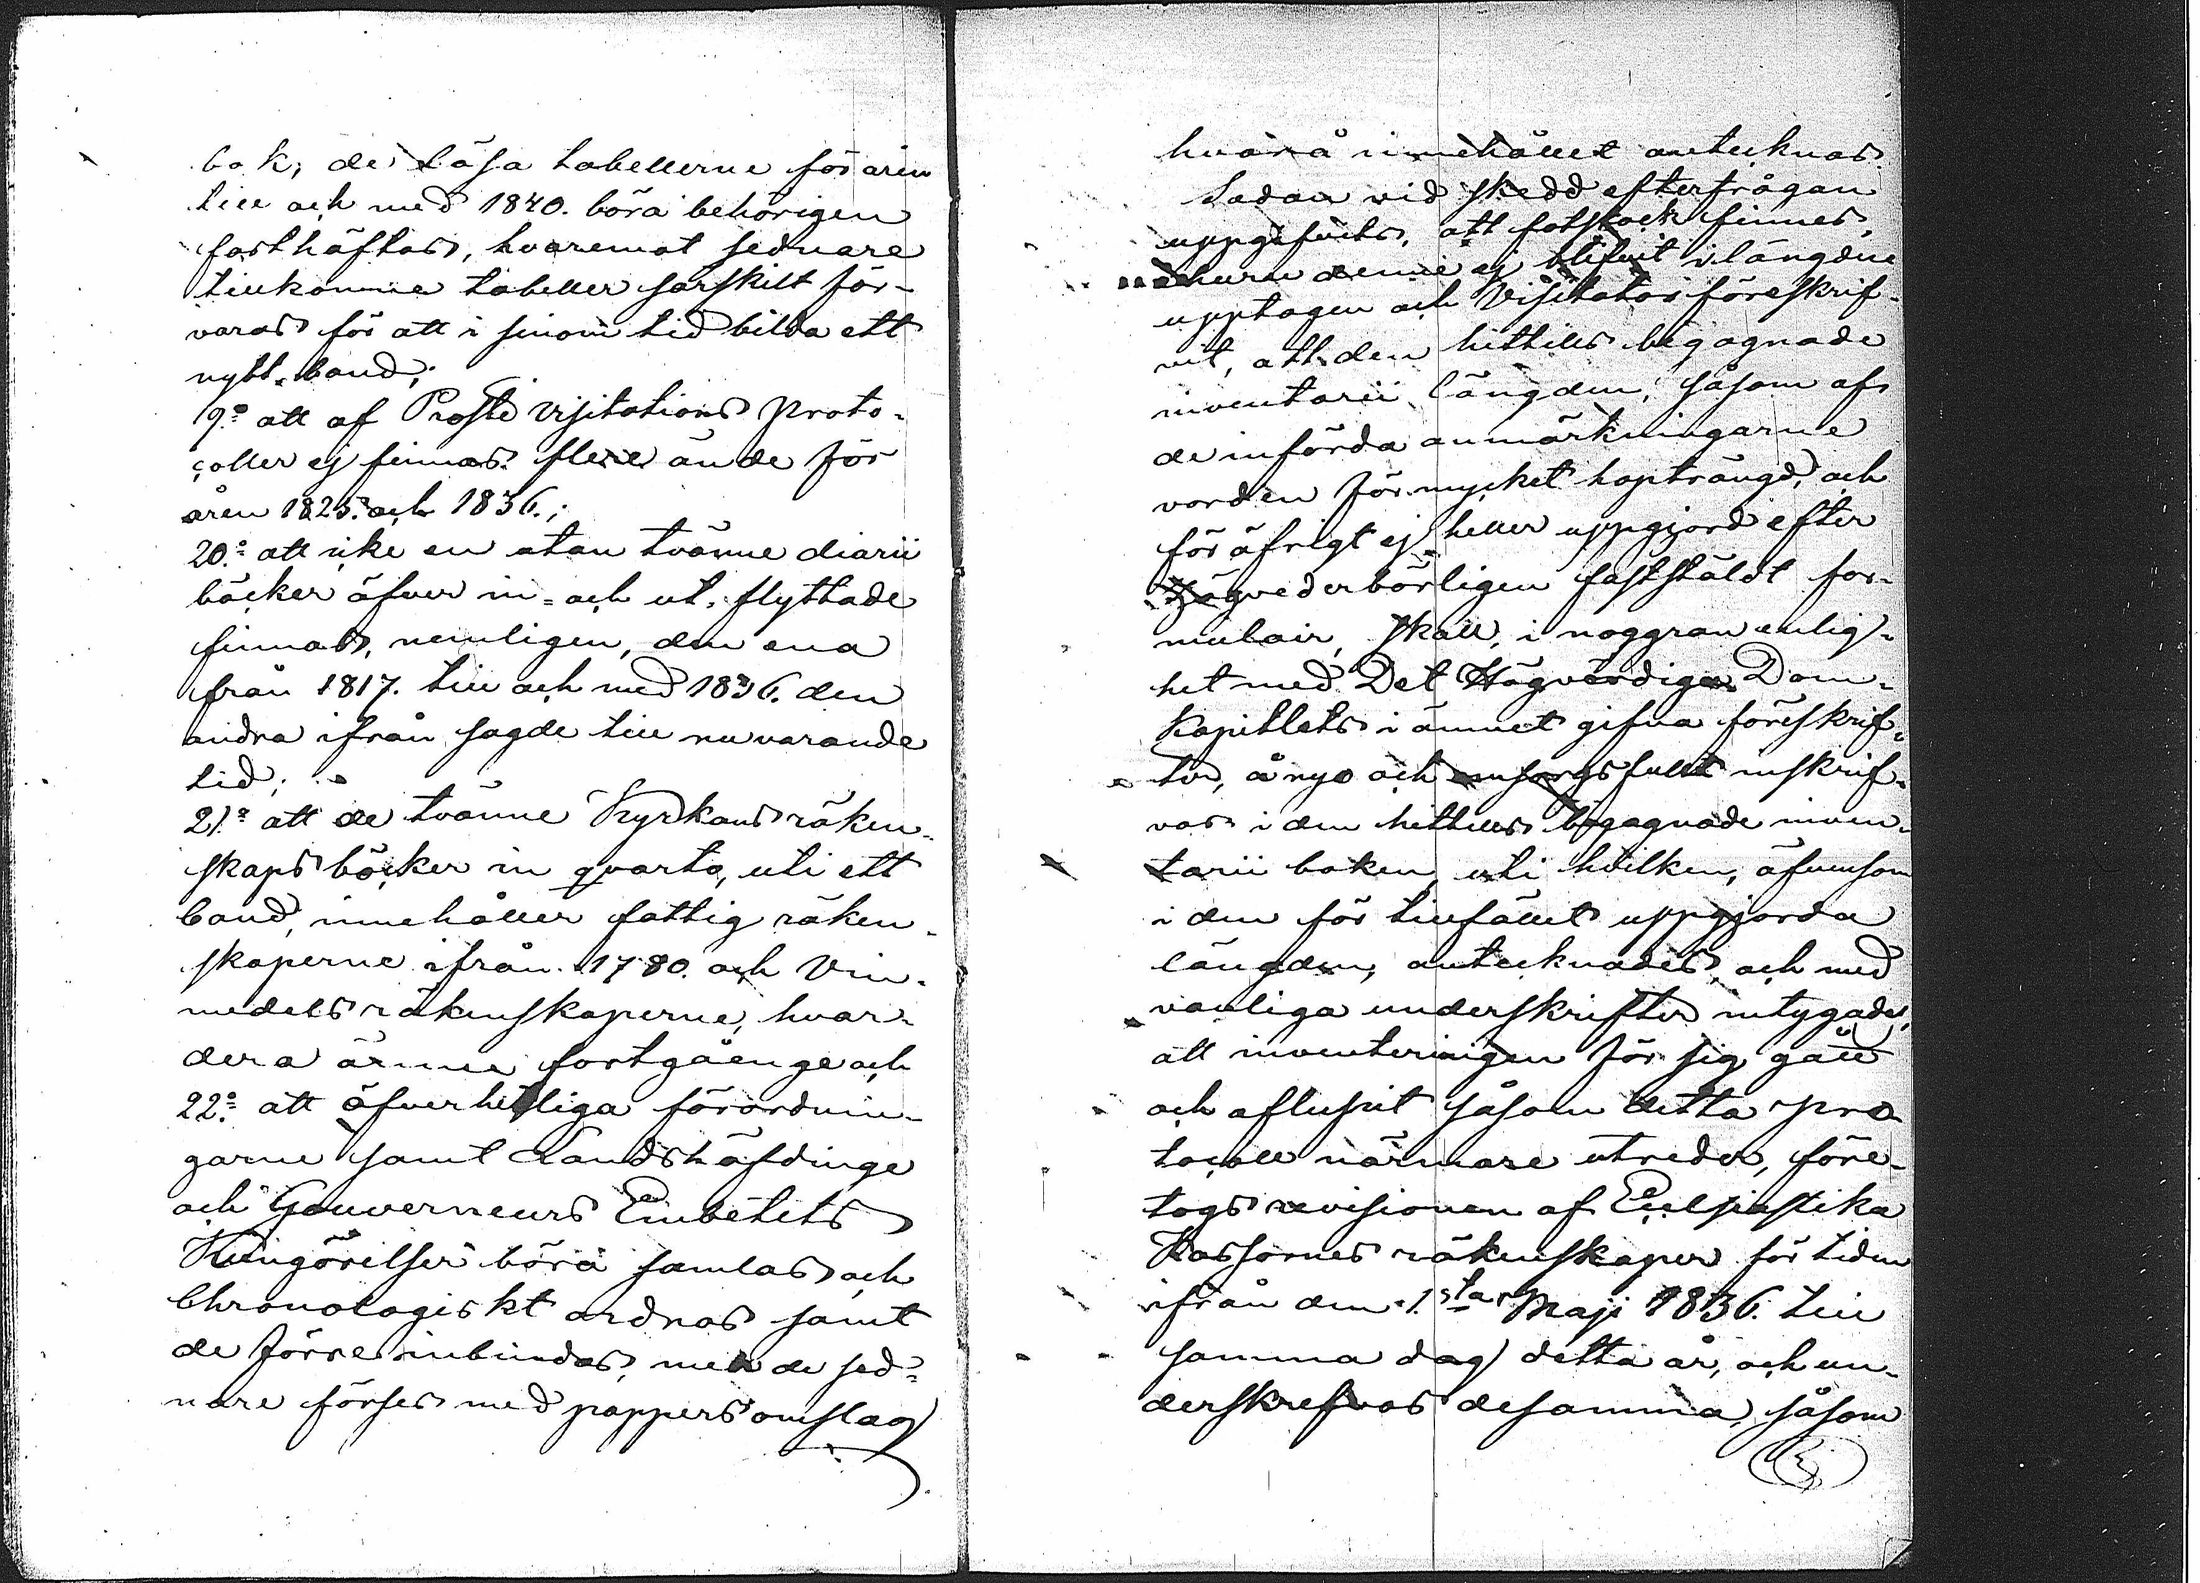 bok; de lösa tabellerne för åren
till och med 1840. böra behörigen
fasthäftas, hvaremot sednare
tillkomne tabeller särskilt för-
varas för att i sinom tid bilda ett
nytt band;
9:o att af Prosте visitations proto-
coller ej finnas flere än de för
åren 1825. och 1836.;
20:o att icke en utan tvänne diarii
böcker öfver in- och ut-flyttade
finnas, nemligen, den ena
från 1817. till och med 1836. den
andra ifrån sagde till nuvarande
tid;
21:o att de tvänne Kyrkans räken-
skaps böcker in qvarto, uti ett
band, innehåller fattig räken-
skaperne ifrån 1780. och Vin-
medels räkenskaperne, hvar-
dera ännu fortgående och
22:o att öfverhetliga förordnin-
garne samt Landshöfdinge
och Gouverneurs Embetets
Kungörelser böra samlas och
Chronologiskt ordnas samt
de förre inbindas, men de sed-
nare förses med pappers omslag
hvarå innehållet antecknas.
Sedan vid skedd efterfrågan
uppgifvits, att fotstock finnes,
ehuru denne ej blifvit i längden
upptagen och Visitator föreskrif-
vit, att den hittills begagnade
inventarii längden, såsom af
de införda anmärkningarne
vorden för mycket hopträngd, och
för öfrigt ej heller uppgjord efter
högvederbörligen fastställdt for-
mulair, skall, i noggran enlig-
het med Det Högvördiga Dom-
Kapitlets i ämnet gifna föreskrif-
ter, å nyo och omsorgsfullt inskrif-
vas i den hittills begagnade inven-
tarii boken, uti hvilken, äfvensom
i den för tillfället uppgjorda
längden, antecknades och med
vanliga underskrifter intygades,
att inventeringen för sig gått
och aflupit såsom detta pro-
tocoll närmare utreder, före-
togs revisionen af Ecclesiastika
Kassornes räkenskaper för tiden
ifrån den 1:sta Maji 1836. till
samma dag detta år, och un-
derskrefvos desamma, såsom